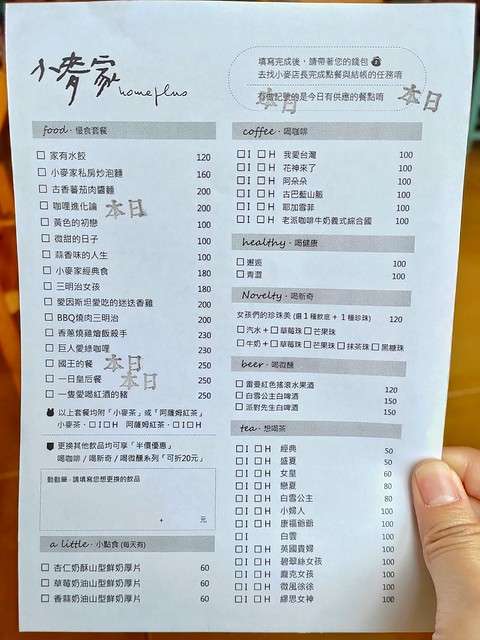 小麥家
homeplus
填寫完成後，請帶著您的錢包
去找小麥店長完成點餐與結帳的任務唷
有做記號的是今日有供應的餐點唷
本日
本日
food · 優食套餐
家有水餃 120
小麥家私房炒泡麵 160
古香蕃茄肉醬麵 200
咖哩進化論 200
本日
黃色的初戀 100
微甜的日子 100
蒜香味的人生 100
小麥家經典食 180
三明治女孩 180
愛因斯坦愛吃的迷迭香雞 200
BBQ燒肉三明治 200
香蔥燒雞燴飯殺手 230
巨人愛綠咖哩 230
國王的餐 250
本日
一日皇后餐 250
本日
一隻愛喝紅酒的豬 250
以上套餐均附「小麥茶」或「阿薩姆紅茶」
小麥茶 · □I □H 阿薩姆紅茶 · □I □H
更換其他飲品均可享「半價優惠」
喝咖啡 / 喝新奇 / 喝微醺系列「可折20元」
動動筆 · 請填寫您想更換的飲品
+ 元
a little · 小點食 (每天有)
杏仁奶酥山型鮮奶厚片 60
草莓奶油山型鮮奶厚片 60
香蒜奶油山型鮮奶厚片 60
coffee · 喝咖啡
□I □H 我愛台灣 100
□I □H 花神來了 100
□I □H 阿朵朵 100
□I □H 古巴藍山風 100
□I □H 耶加雪菲 100
□I □H 老派咖啡牛奶義式綜合國 100
healthy · 喝健康
邂逅 100
青澀 100
Novelty · 喝新奇
女孩們的珍珠美 (選1種飲底 + 1種珍珠) 120
□汽水 + □草莓珠 □芒果珠
□牛奶 + □草莓珠 □芒果珠 □抹茶珠 □黑糖珠
beer · 喝微醺
雷曼紅色搖滾水果酒 120
白雪公主白啤酒 150
派對先生白啤酒 150
tea · 想喝茶
□I □H 經典 50
□I □H 盛夏 50
□I □H 女皇 60
□I □H 戀夏 80
□I □H 白雪公主 80
□I □H 小婦人 100
□I □H 康福爺爺 100
□I 白雲 100
□I □H 英國貴婦 100
□I □H 碧翠絲女孩 100
□I □H 龐克女孩 100
□I □H 微風徐徐 100
□I □H 繆思女神 100